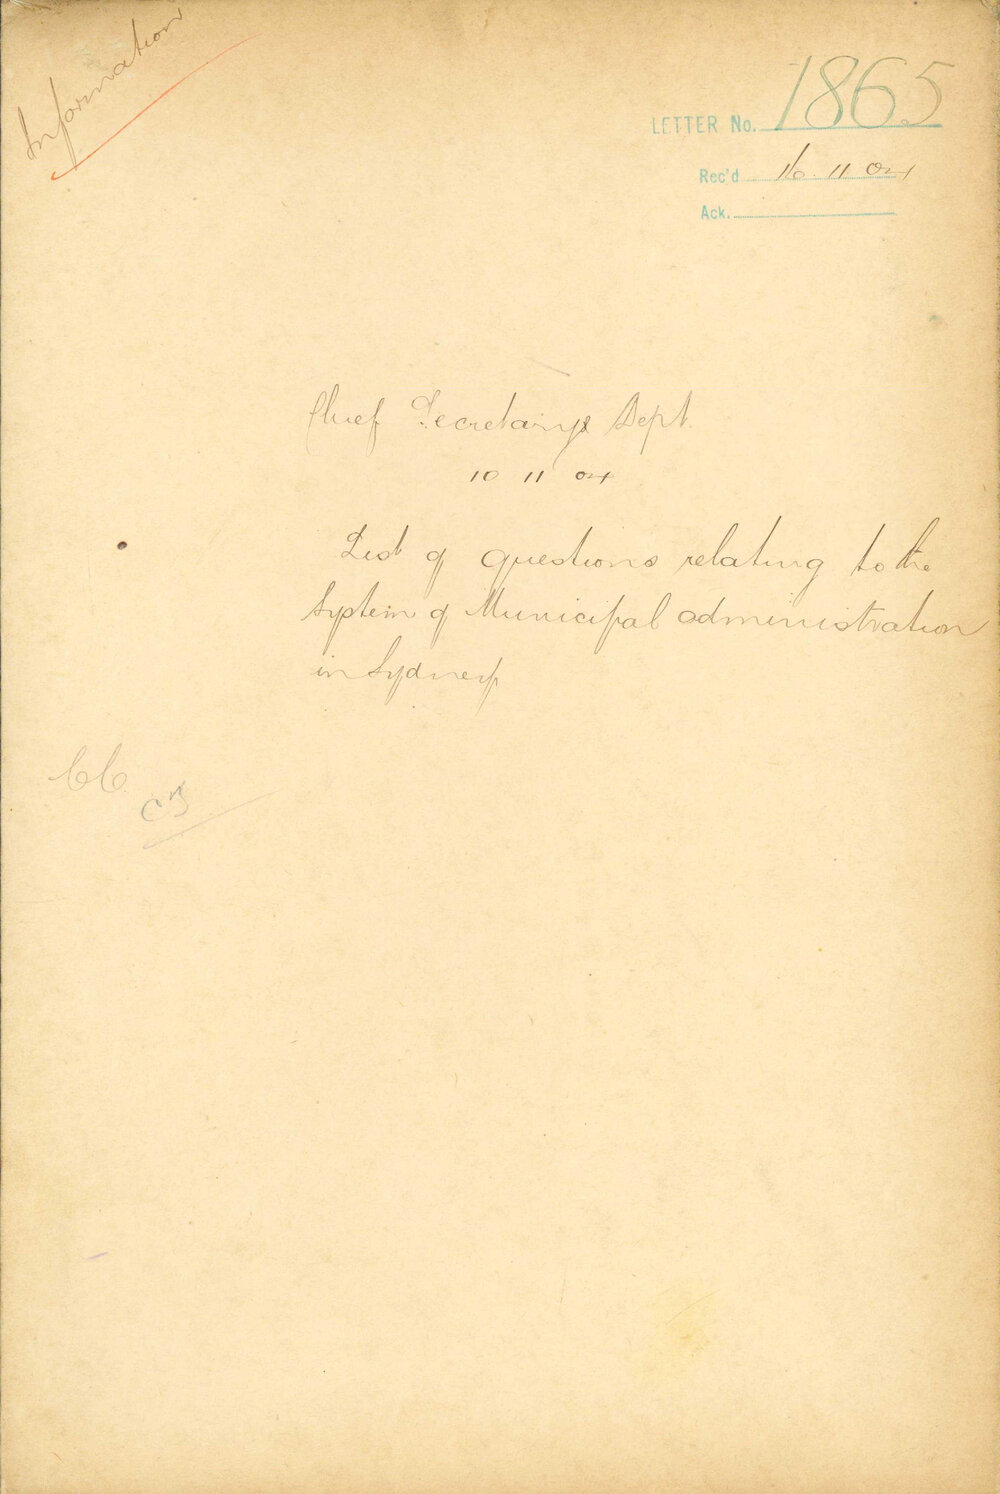 Information
LETTER No. 1865
Rec'd 16 11 04
Ack.
Chief Secretary's Dept.
10 11 04
List of questions relating to the
System of Municipal administration
in Sydney